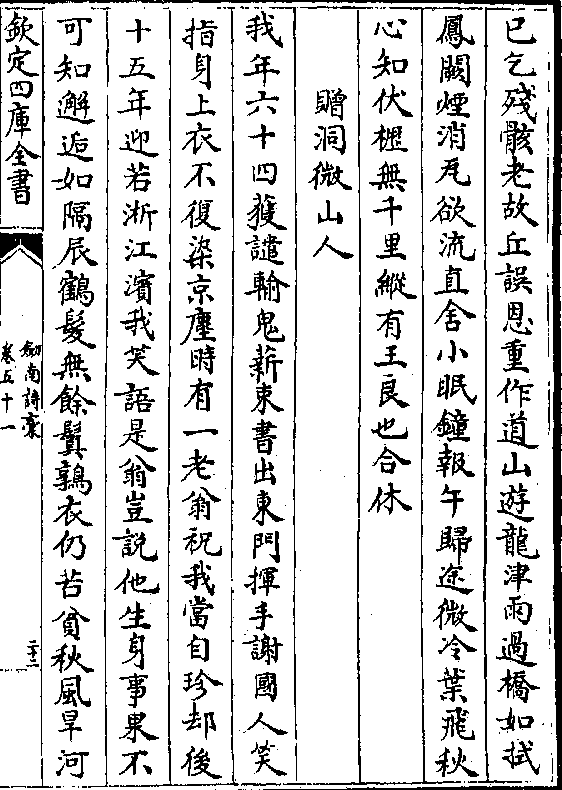 已乞殘骸老故丘誤恩重作道山遊龍津雨過橋如拭
鳳闕煙消瓦欲流直舍小眠鐘報午歸途微冷葉飛秋
心知伏櫪無千里縱有王良也合休
贈洞微山人
我年六十四獲譴輸鬼薪束書出東門揮手謝國人笑
指身上衣不復染京塵時有一老翁祝我當自珍却後
十五年迎若浙江濱我笑語是翁豈說他生身事果不
可知邂逅如隔辰鶴髮無餘鬒鶉衣仍苦貧秋風旱河
欽定四庫全書
劍南詩稾
卷五十一
二十三